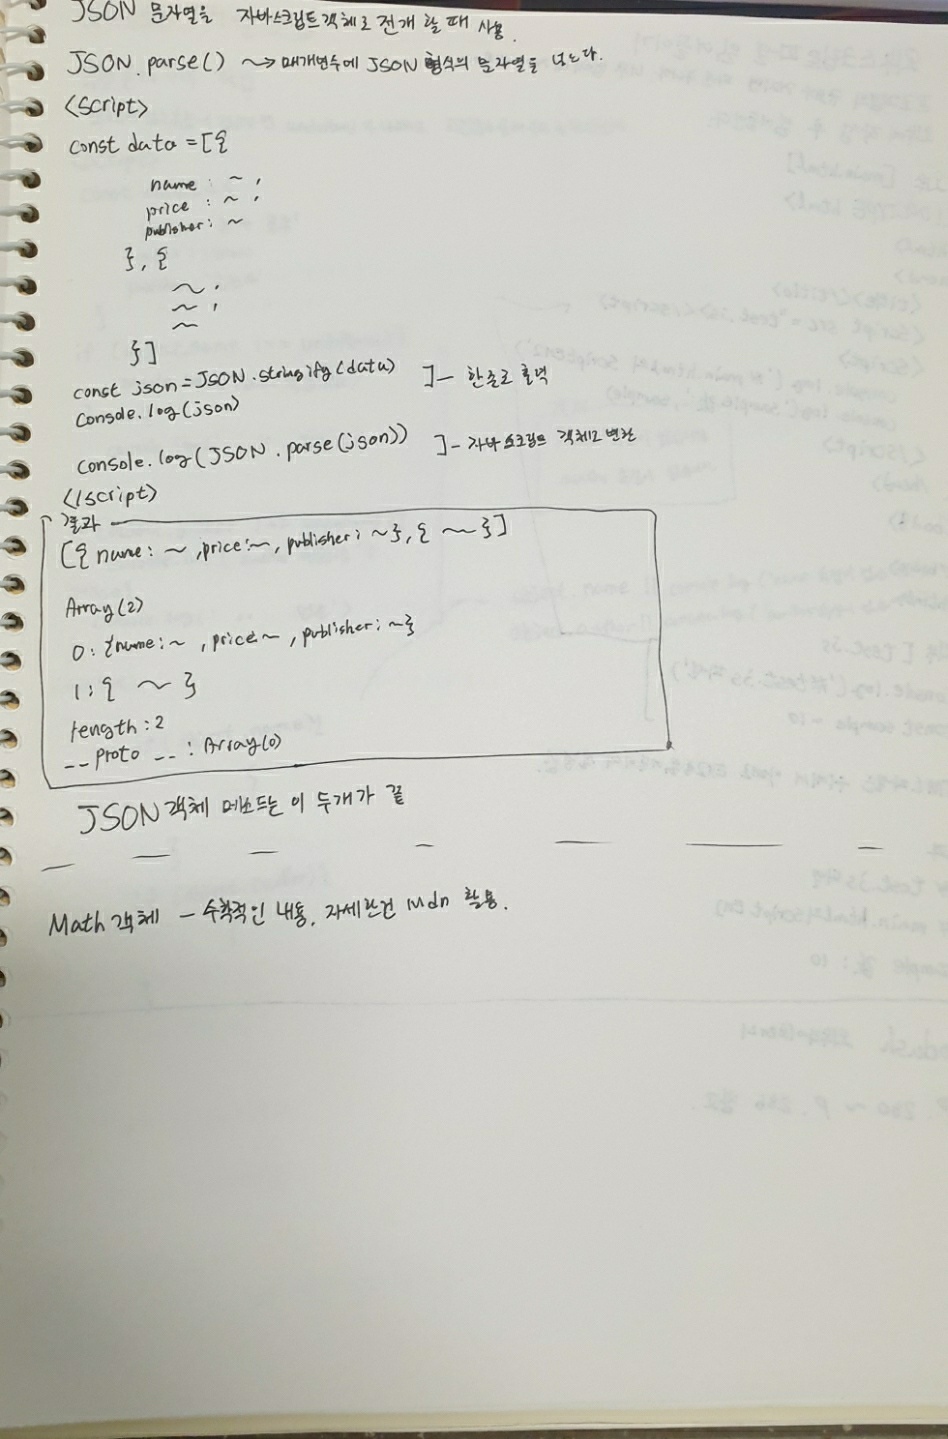 JSON 문자열을 자바스크립트객체로 전개 할 때 사용.
JSON.parse() ~> 매개변수에 JSON 형식의 문자열을 넣는다.
<script>
const data = [{
name : ~ ,
price : ~ ,
publisher : ~
}, {
~ ,
~ ,
~
}]
const json = JSON.stringify(data) ]— 한줄로 출력
console.log(json)
console.log(JSON.parse(json)) ]- 자바스크립트 객체로 변환
</script>
결과
[{name: ~ , price: ~, publisher: ~}, { ~ }]
Array(2)
0: {name: ~ , price: ~ , publisher: ~}
1: { ~ }
length : 2
__proto__ : Array(0)
JSON 객체 메소드는 이 두개가 끝
Math 객체 - 수학적인 내용, 자세한건 Mdn 활용.